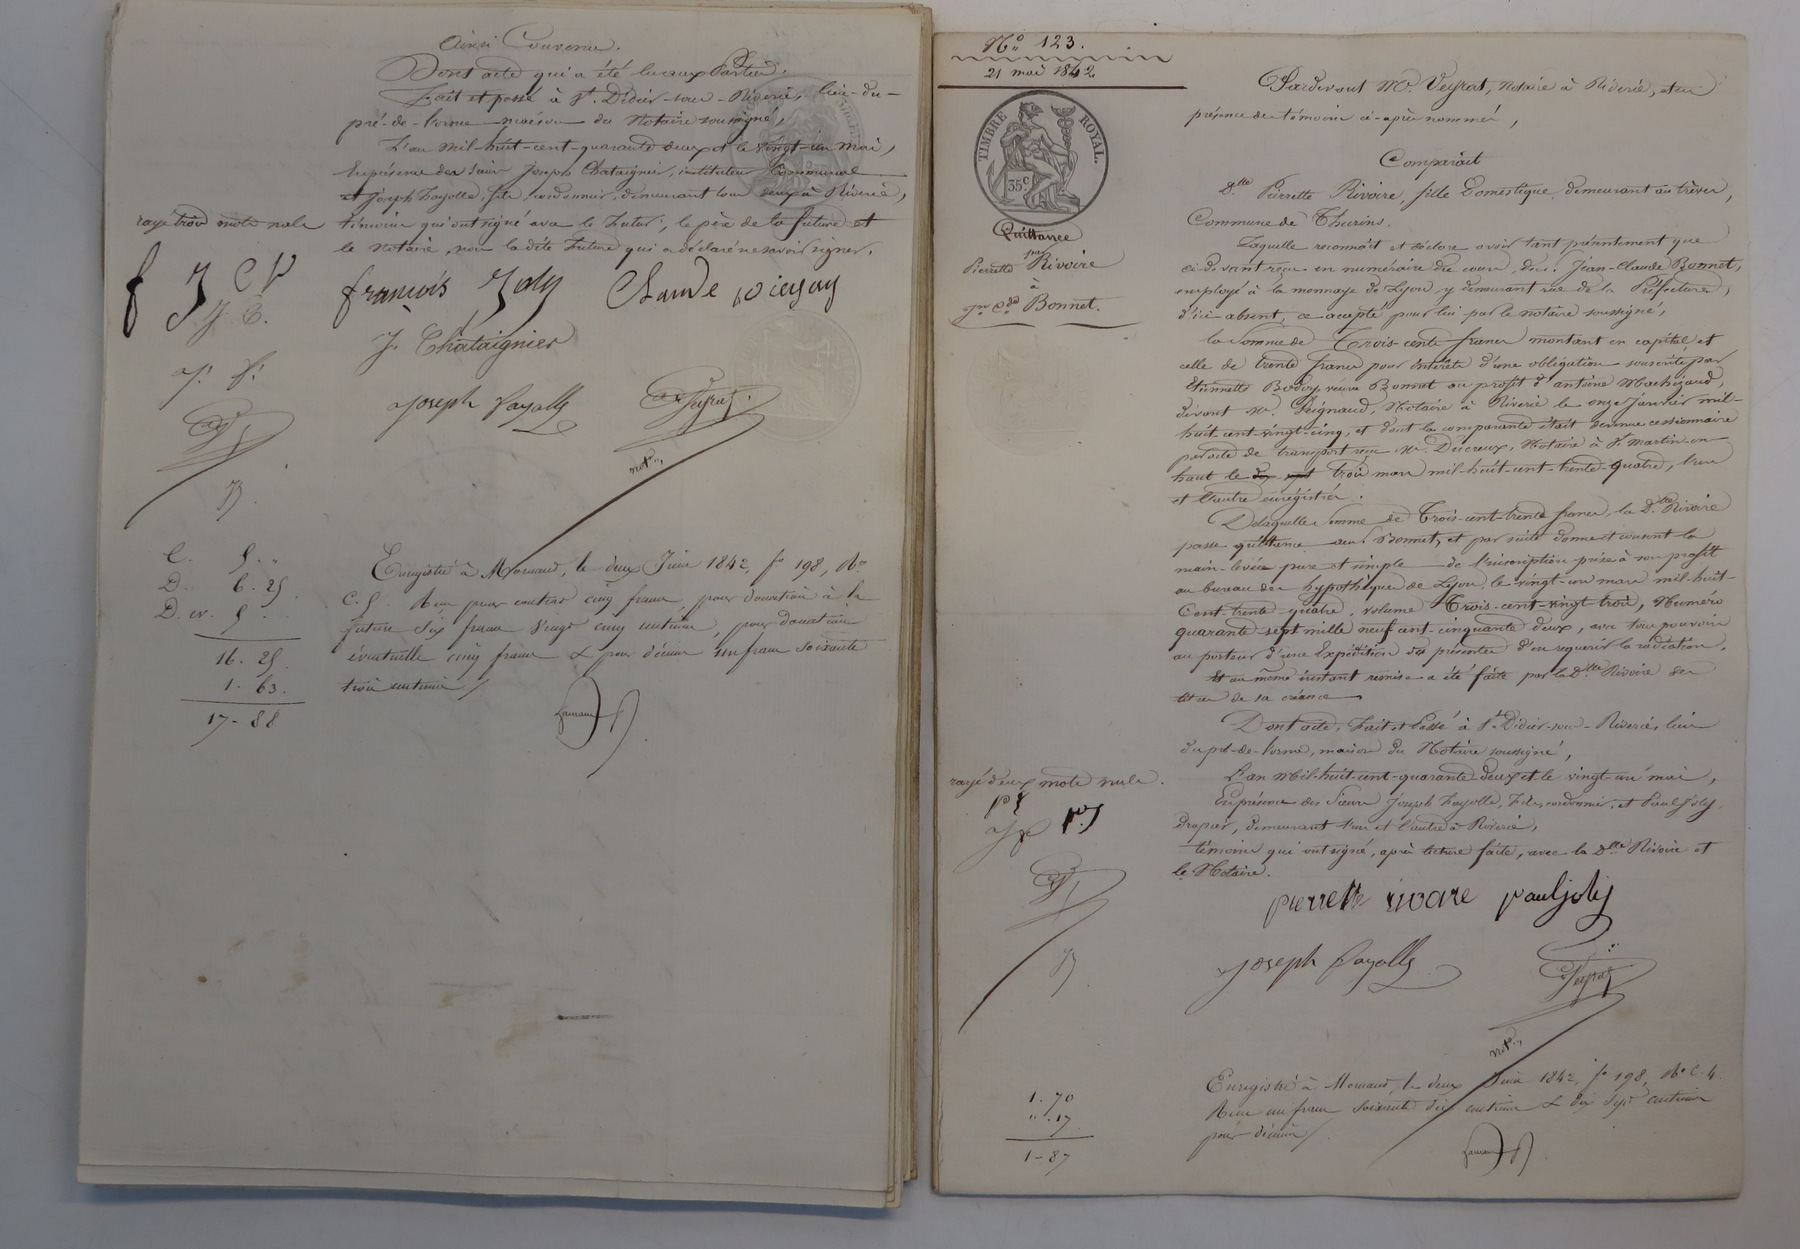 Ainsi Convenu.
Dont acte qui a été lu aux Parties.
Fait et passé à St. Didier-sous-Riverie, lieu-du-
pré-de-l'orme maison du Notaire soussigné,
L'an mil-huit-cent-quarante deux et le vingt-un mai,
En présence des sieurs Joseph Chataignier, instituteur Communal
et Joseph Fayolle, fils, cordonnier, demeurant tous deux à Riverie,
témoins qui ont signé avec le futur, le père de la future et
le Notaire, non la dite future qui a déclaré ne savoir signer.
rayé trois mots nuls
f J C V
J. C.
françois Joly Claude
J. Chataignier
J. f.
Joseph fayolle Veyrat
notre.
C. 5. "
D. 6. 25.
D. ev. 5 . .
16. 25.
1. 63.
17 - 88
Enregistré à Mornand, le deux Juin 1842, fo 198, Ro
C. 5. Reçu pour contrat cinq francs, pour donation à la
future six francs vingt cinq centimes, pour donation
éventuelle cinq francs & pour décime un franc soixante
trois centimes
No 123.
21 mai 1842
TIMBRE ROYAL.
35 c
Quittance
Pierrette Rivoire
à
Jn Cde Bonnet.
Pardevant Me. Veyrat, Notaire à Riverie, et en
présence des témoins ci-après nommés,
Comparait
Dlle Pierrette Rivoire, fille Domestique, demeurant au trêver,
Commune de Thurins.
Laquelle reconnait et déclare avoir tant présentement que
ci-devant reçu en numéraire du cours, du sr. Jean-Claude Bonnet,
employé à la monnaye de Lyon y demeurant rue de la Préfecture,
d'ici absent, ce accepté pour lui par le notaire soussigné,
la Somme de Trois-cents francs montant en capital, et
celle de trente francs pour intérêts d'une obligation souscrite par
Etiennette Bador, veuve Bonnet au profit d'antoine Machizaud,
devant Me. Peignaud, Notaire à Riverie le onze Janvier mil-
huit-cent-vingt-cinq, et dont la comparante était devenue cessionnaire
par acte de transport reçu Me. Ducreux, Notaire à St. Martin-en-
haut le trois mars mil-huit-cent-trente-quatre, l'un
et l'autre enregistrés.
De laquelle Somme de Trois-cent-trente francs, la Dlle Rivoire
passe quittance au sr. Bonnet, et par suite donne et consent la
main-levée pure et simple de l'inscription prise à son profit
au bureau des hypothèques de Lyon, le vingt-un mars mil-huit-
Cent-trente-quatre, volume Trois-cent-vingt-trois, Numéro
quarante-sept mille neuf-cent-cinquante deux, avec tous pouvoirs
au porteur d'une Expédition des présentes d'en requérir la radiation.
Et au même instant remise a été faite par la Dlle Rivoire des
titres de sa créance
Dont acte, Fait et Passé à St. Didier-sous-Riverie, lieu
du pré-de-l'orme, maison du Notaire soussigné,
L'an Mil-huit-cent-quarante-deux et le vingt-un mai,
En présence des Sieurs Joseph Fayolle, fils, cordonnier, et Paul Joly,
drapier, demeurant l'un et l'autre à Riverie,
témoins qui ont signé, après lecture faite, avec la Dlle Rivoire et
le Notaire.
rayé deux mots nuls.
pierrette rivoire paul joly
Joseph fayolle Veyrat
notre.
1. 70
". 17
1 - 87
Enregistré à Mornand, le deux Juin 1842, fo 198, Ro C. 4.
Reçu un franc soixante dix centimes & dix sept centimes
pour décime